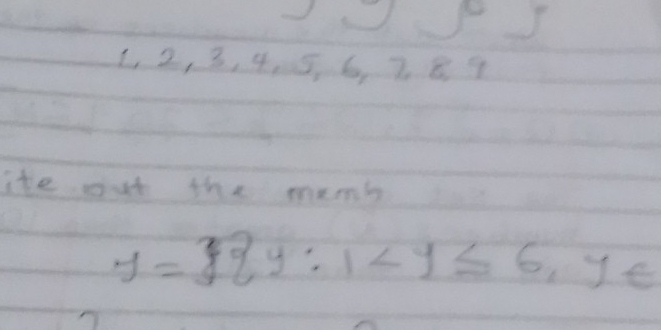 1, 2, 3, 4, 5, 6, 7, 8, 9
ite out the memb
y = {y : 1 < y ≤ 6, y ∈